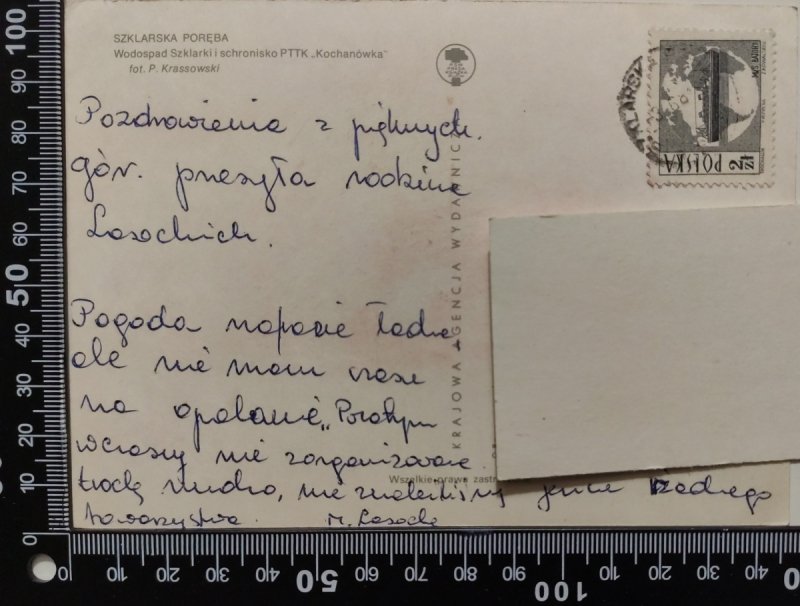 SZKLARSKA PORĘBA
Wodospad Szklarki i schronisko PTTK „Kochanówka”
fot. P. Krassowski
Pozdrowienia z pięknych
gór. przesyła rodzina
Lasockich.
Pogoda na razie ładna
ale nie mam czasu
na opalanie „Poza tym
wczasy nie zorganizowane
trochę nudno, nie znaleźliśmy jeszcze żadnego
towarzystwa. M. Lasocka
KRAJOWA AGENCJA WYDAWNICZA
Wszelkie prawa zastr
POLSKA
2 zł
SZKLARSKA
100
90
80
70
60
50
40
30
20
10
0
0
10
20
30
40
50
60
70
80
90
100
10
20
30
40